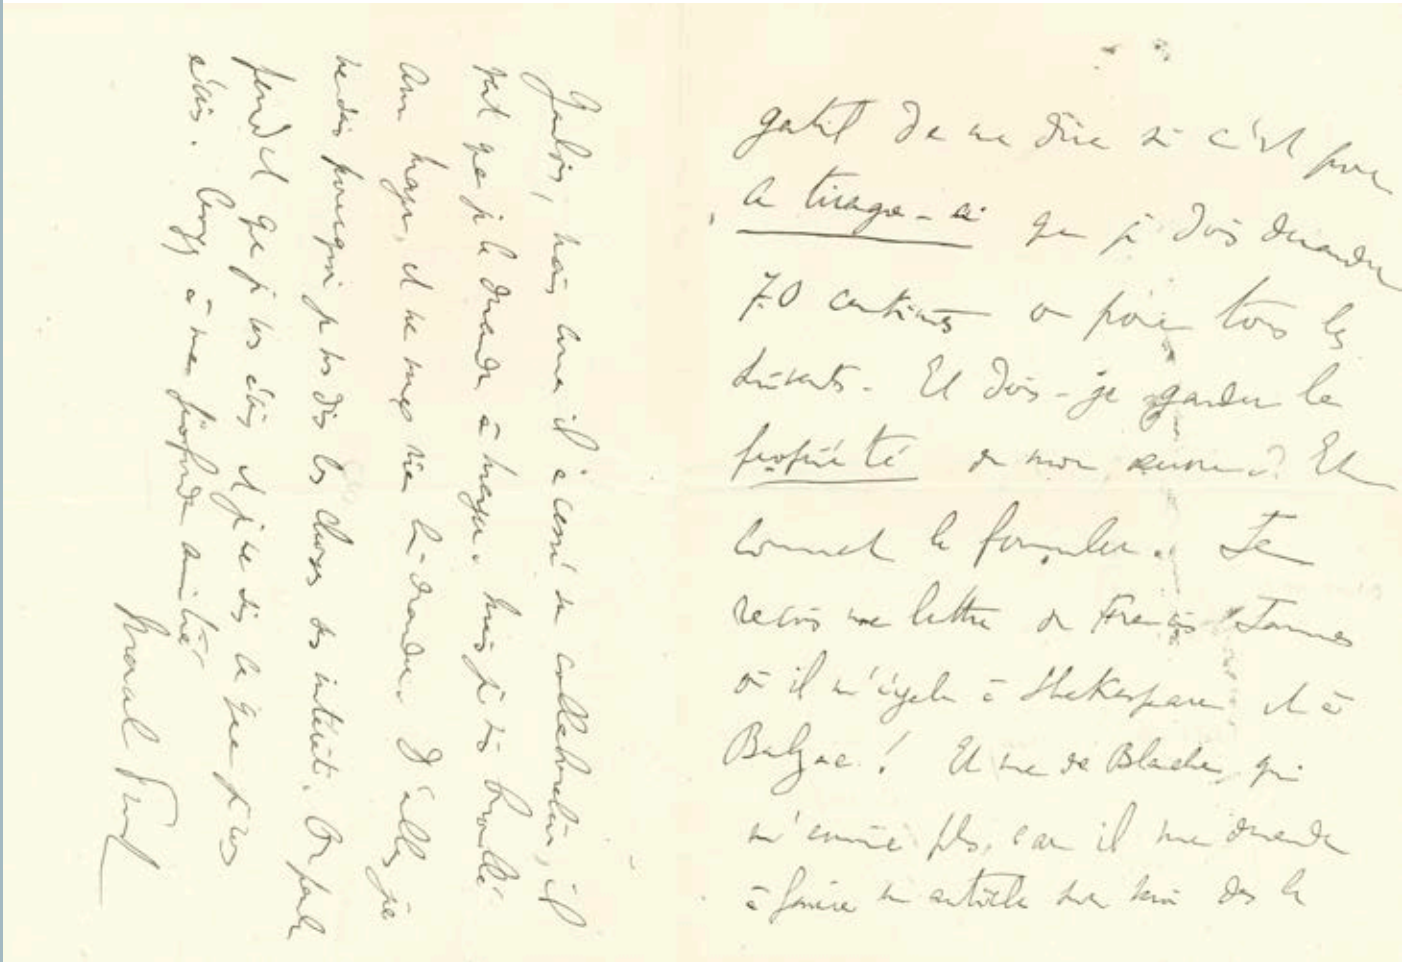 gentil de me dire si c'est pour
ce tirage-ci que je dois demander
70 centimes ou pour tous les
suivants. Et dois-je garder la
propriété de mon œuvre? Et
comment le formuler. Je
reçois une lettre de Francis Jammes
où il m'égale à Shakespeare et à
Balzac! Et une de Blache qui
m'ennuie plus, car il me demande
à faire un article sur moi dans le
Gaulois, mais comme il a cessé sa collaboration, il
veut que je le demande à Meyer. Mais je suis brouillé
avec Meyer, et ne veux rien lui demander. D'ailleurs je
ne sais pourquoi je vous dis les choses sans intérêt. On parle
pendant que je vous écris et je ne sais ce que je vous
écris. Croyez à ma profonde amitié
Marcel Proust